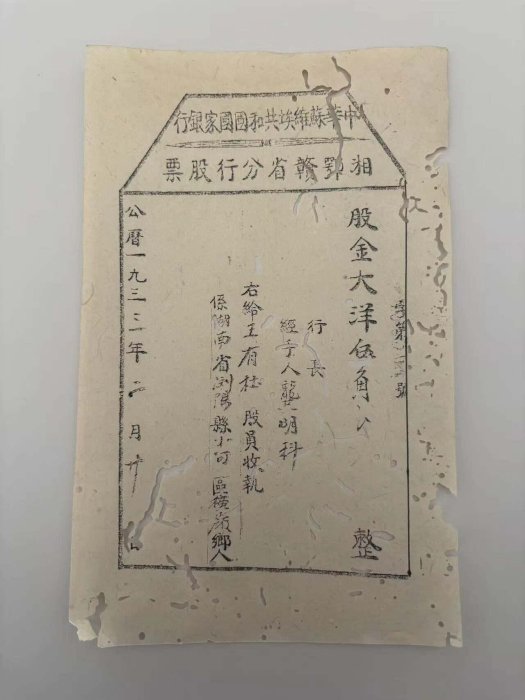 中華蘇維埃共和國國家銀行
湘鄂贛省分行股票
字第 號
股金大洋伍角 整
行長
經手人龔明科
右給王有社 股員收執
係湖南省瀏陽縣 區橫嶺鄉人
公曆一九三三年二月廿 日